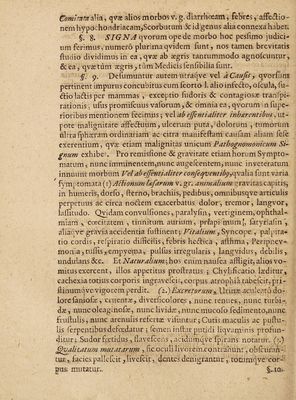 Comitata alia, quæ alios morbos v. g. diarrhœam, febres, affectio-
nem hypochondriacam, Scorbutum & id genus alia connexa habet.
§. 8. SIGNA quorum ope de morbo hoc pessimo judici-
um ferimus, numerô plurima qvidem sunt, nos tamen brevitatis
studio dividimus in ea, quæ ab ægris tantummodo agnoscuntur,
& ea, quæ tùm ægris, tùm Medicis sensibilia sunt.
§. 9. Desumuntur autem utraque vel à Causis, qvorsum
pertinent impurus concubitus cum scorto l. alio infecto, oscula, su-
ctio lactis per mammas, exceptio fœdoris & contagiosæ transpi-
rationis, usus promiscuus vasorum, & omnia ea, qvorum in supe-
rioribus mentionem fecimus; vel ab essentialiter inhærentibus, ut-
pote malignitate affectuum, ulcerum puta, dolorum, tumorum
ultra sphæram ordinariam ac citra manifestam causam aliam sese
exerentium, quæ etiam malignitas unicum Pathognomonicum Si-
gnum exhibet. Pro remissione & gravitate etiam horum Sympto-
matum, nunc imminentem, nunc augescentem, nunc inveteratum
innuunt morbum Vel ab essentialiter conseqventibus, qvalia sunt varia
symptomata (1) Actionum læsarum v. gr. animalium gravitas capitis,
in humeris, dorso, sterno, brachiis, pedibus, omnibusque articulis
perpetuus ac circa noctem exacerbatus dolor, tremor, langvor,
lassitudo. Qvidam convulsiones, paralysin, vertiginem, ophthal-
miam, cœcitatem, tinnitum aurium, priapismum, satyriasin,
aliaque gravia accidentia sustinent; Vitalium, Syncope, palpita-
tio cordis, respiratio difficilis, febris hectica, asthma, Peripnev-
monia, tussis, empyema, pulsus irregularis, langvidus, debilis,
undulans &c. l. Naturalium; hos enim nausea affligit, alios vo-
mitus exercent, illos appetitus prostratus; Chylificatio læditur,
cachexia totius corporis ingravescit, corpus atrophia tabescit, pri-
stinumque vigorem perdit. (2.) Excretorum, Urinæ aculentô do-
lore saniosæ, cruentæ, diversicolores, nunc tenues, nunc turbi-
dæ, nunc oleaginosæ, nunc lividæ, nunc mucoso sedimento, nunc
frustulis, nunc arenulis refertæ visuntur; Cutis maculis ac pustu-
lis serpentibus defœdatur; semen instar putidi liqvaminis profun-
ditur; Sudor fœtidus, flavescens, acidumque spirans notatur. (3.)
Qualitatum mutatarum, sic oculi livorem contrahunt, obscuran-
tur, facies pallescit, livescit, dentes denigrantur, totumque cor-
pus mutatur. §. 10.